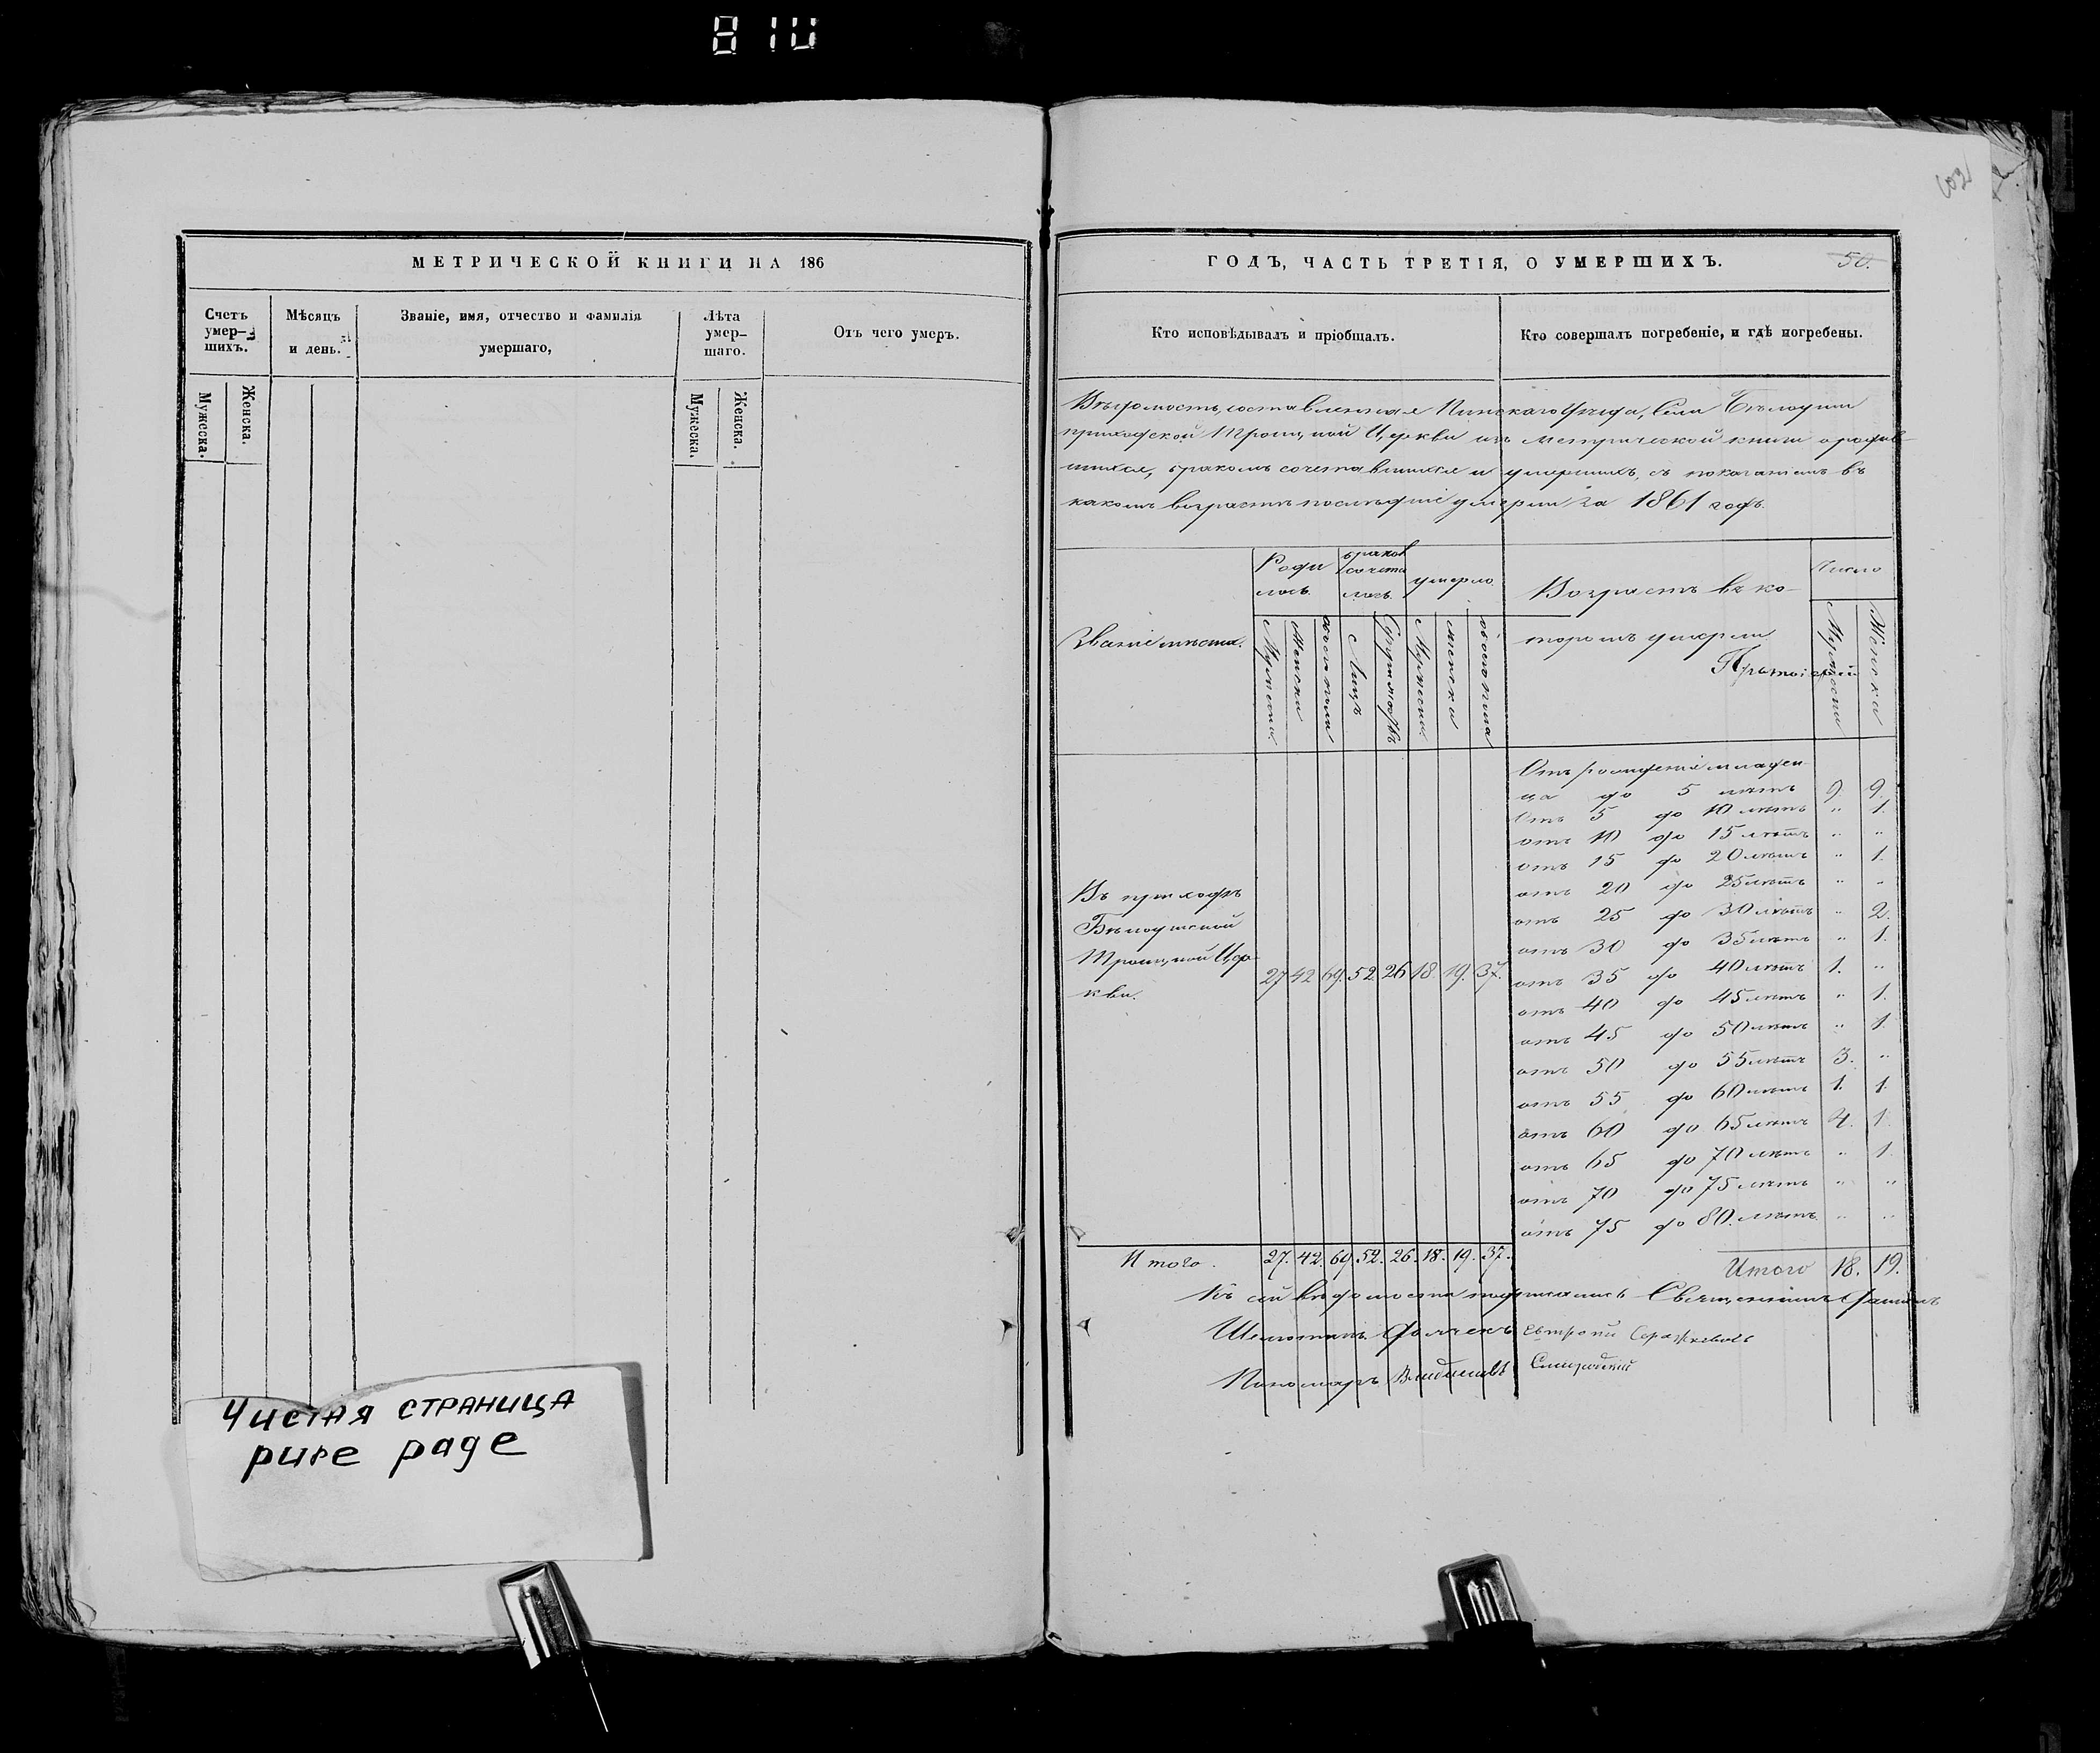 810
МЕТРИЧЕСКОЙ КНИГИ НА 186
Счетъ умер-шихъ.
Мѣсяцъ и день.
Званіе, имя, отчество и фамилія умершаго,
Лѣта умер-шаго.
Отъ чего умеръ.
Мужеска.
Женска.
Мужеска.
Женска.
Чистая страница
pure page
ГОДЪ, ЧАСТЬ ТРЕТІЯ, О УМЕРШИХЪ.
50.
Кто исповѣдывалъ и пріобщалъ.
Кто совершалъ погребеніе, и гдѣ погребены.
Вѣдомость, составленная Пинскаго Уѣзда, села Бѣлоуши
приходской Троицкой Церкви изъ метрической книги о родив-
шихся, бракомъ сочетавшихся и умершихъ, съ показаніемъ въ
какомъ возрастѣ послѣдніе умерли за 1861 годъ.
Званіе мѣста.
Роди лось.
браковъ сочета лось.
умерло.
Возрастъ въ ко-
торомъ умерли
Число
Мужеска
Женска
обоего пола
Лицъ
Супружествъ
Мужеска
женска
обоего пола
Мужеска
Женска
Отъ рожденія младен-
ца до 5 лѣтъ 9. 9.
Отъ 5 до 10 лѣтъ " 1.
отъ 10 до 15 лѣтъ " "
отъ 15 до 20 лѣтъ " 1.
отъ 20 до 25 лѣтъ " "
отъ 25 до 30 лѣтъ " 2.
отъ 30 до 35 лѣтъ " 1.
отъ 35 до 40 лѣтъ 1. "
отъ 40 до 45 лѣтъ " 1.
отъ 45 до 50 лѣтъ " 1.
отъ 50 до 55 лѣтъ 3. "
отъ 55 до 60 лѣтъ 1. 1.
отъ 60 до 65 лѣтъ 4. 1.
отъ 65 до 70 лѣтъ " 1.
отъ 70 до 75 лѣтъ " "
отъ 75 до 80 лѣтъ " "
Въ приходѣ
Бѣлоушской
Троицкой Цер-
кви.
27 42 69. 52 26 18 19. 37.
Итого. 27. 42. 69. 52. 26. 18. 19. 37.
Итого 18. 19.
Къ сей вѣдомости подписались Священникъ
Пономарь